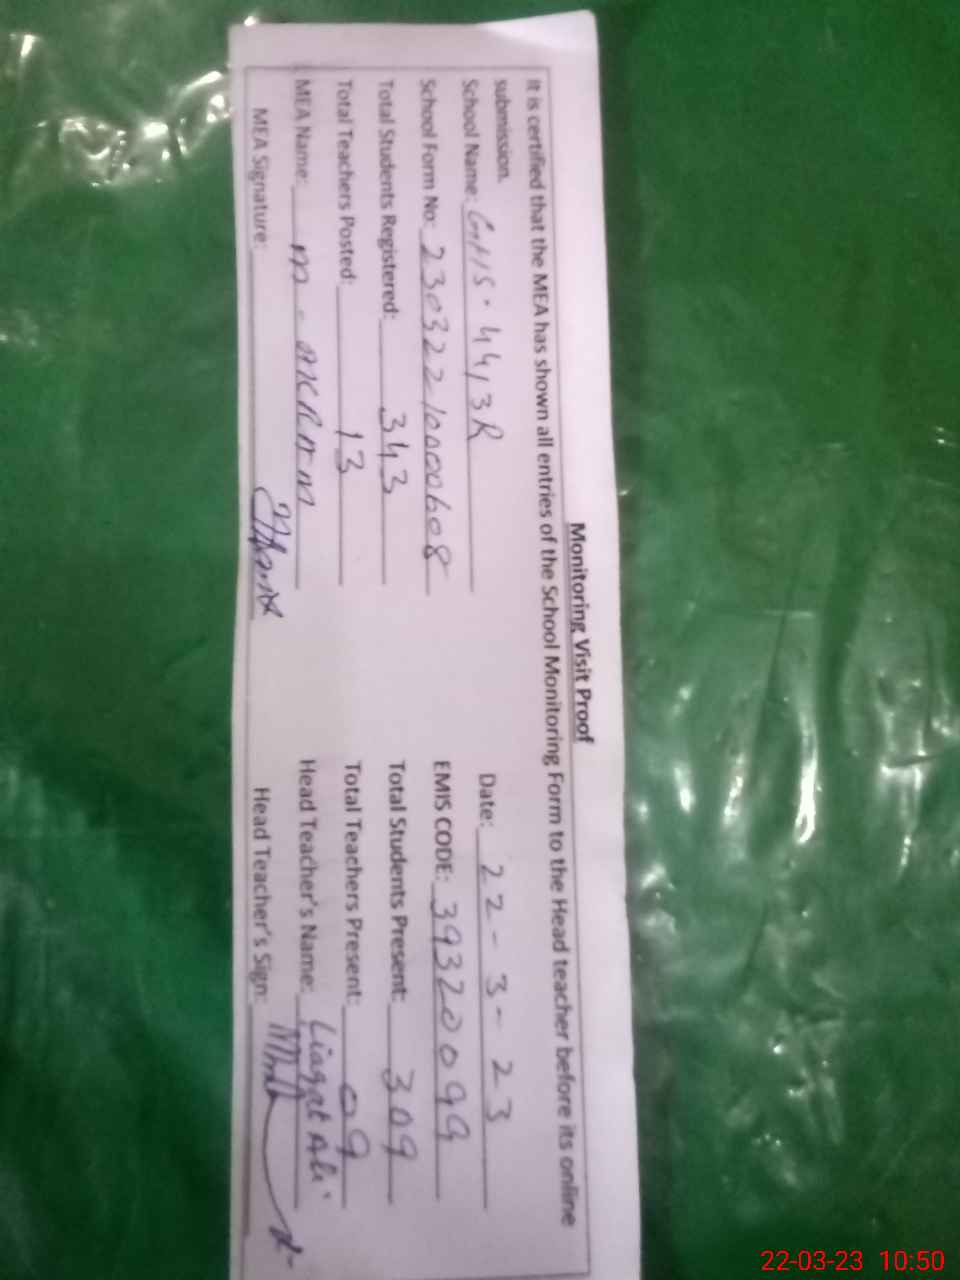 Monitoring Visit Proof
It is certified that the MEA has shown all entries of the School Monitoring Form to the Head teacher before its online
submission.
School Name: GHS. 44/3R Date: 22-3-23
School Form No: 2303221000608 EMIS CODE: 39320099
Total Students Registered: 343 Total Students Present: 309
Total Teachers Posted: 13 Total Teachers Present: 09
MEA Name: M-AKRAM Head Teacher's Name: Liaqat Ali.
MEA Signature: Head Teacher's Sign:
22-03-23 10:50